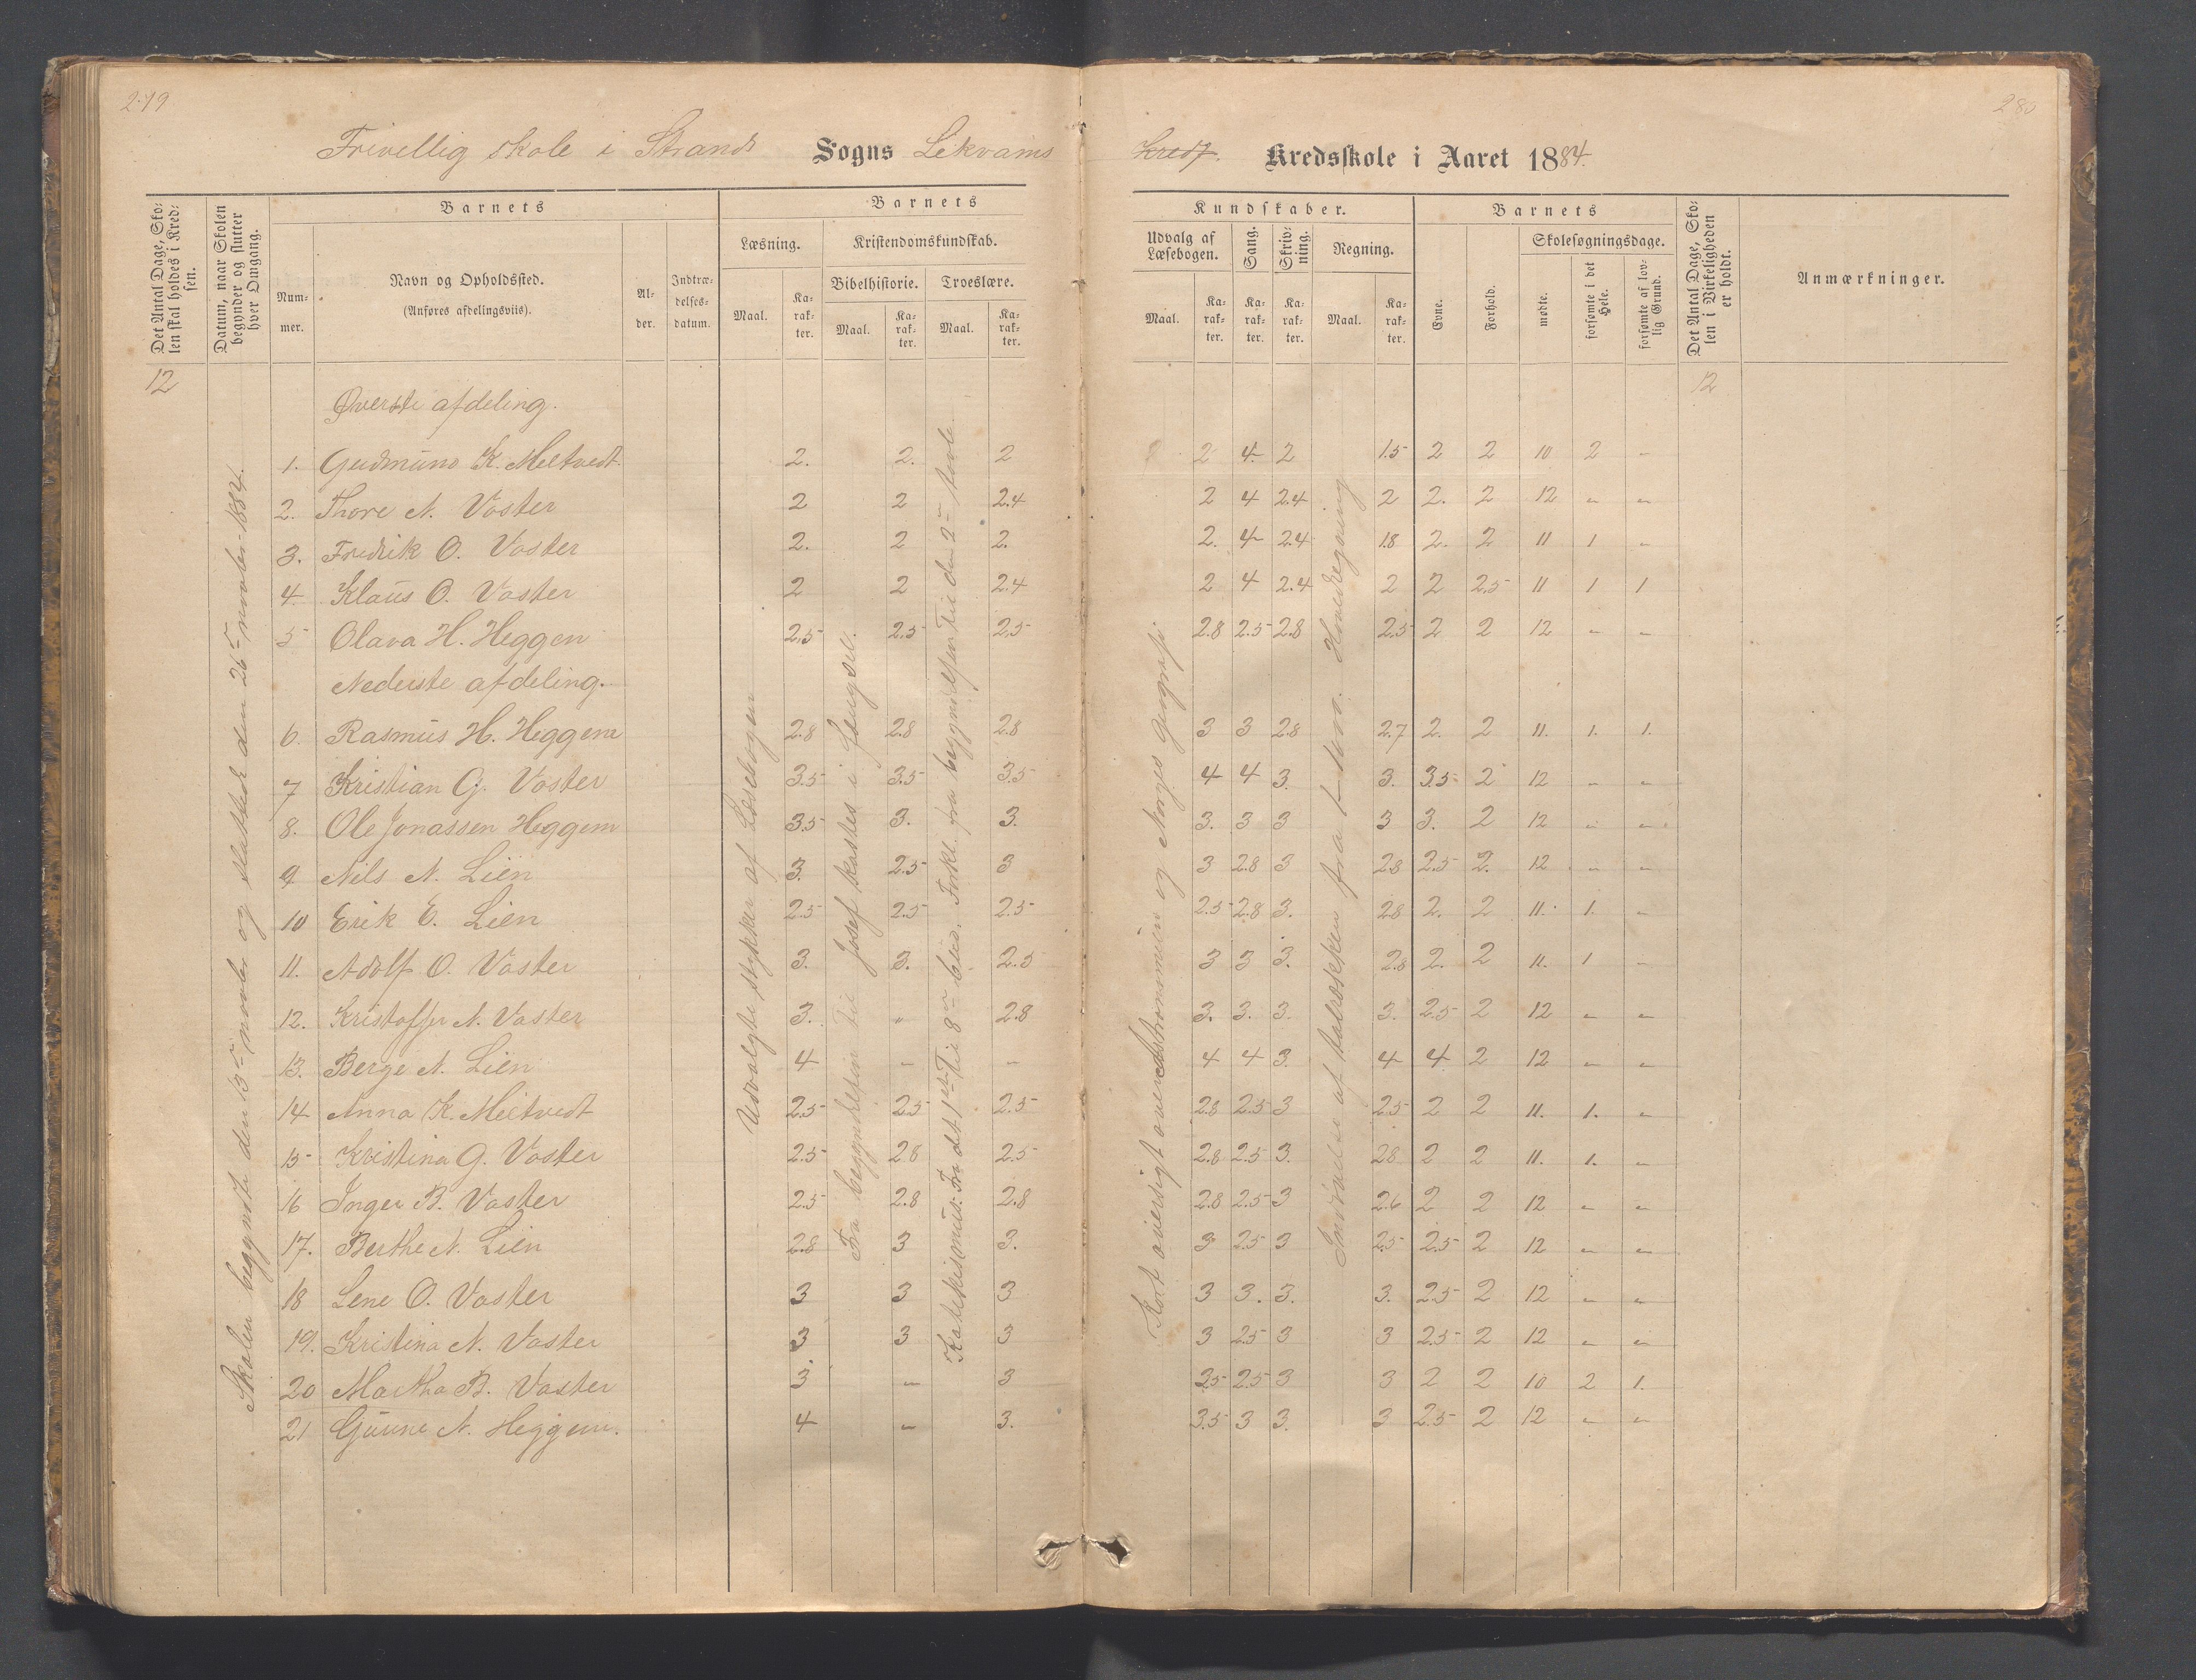 279
280
Frivellig skole i Strands Sogns Lekvams
Kreds. Kredsskole i Aaret 1884.
Det Antal Dage, Skolen skal holdes i Kredsen.
Datum, naar Skolen begynder og slutter hver Omgang.
Barnets
Nummer.
Navn og Opholdssted.
(Anføres afdelingsviis).
Alder.
Indtrædelsesdatum.
Barnets
Læsning.
Kristendomskundskab.
Bibelhistorie. Troeslære.
Maal. Karakter. Maal. Karakter. Maal. Karakter.
Kundskaber.
Udvalg af Læsebogen.
Sang.
Skrivning.
Regning.
Maal. Karakter. Karakter. Karakter. Maal. Karakter.
Barnets
Evne.
Forhold.
Skolesøgningsdage.
mødte.
forsømte i det Hele.
forsømte af lovlig Grund.
Det Antal Dage, Skolen i Virkeligheden er holdt.
Anmærkninger.
12
12
Skolen begynte den 13de novbr. og sluttede den 26de novbr. 1884.
Udvalgte stykker af Læsebogen
Fra begyndelsen til Josef kastes i fengsel.
Kort oversigt over Astronomien og Norges Geografi.
Øverste afdeling.
1. Gudmund K. Meltvedt. 2. 2. 2 2 4 2 1.5 2 2 10 2 -
2. Thore N. Voster 2 2 2.4 2 4 2.4 2 2. 2 12 - -
3. Fredrik O. Voster 2. 2 2. 2. 4 2.4 1.8 2. 2 11 1 -
4. Klaus O. Voster 2 2 2.4 2 4 2.4 2 2 2.5 11 1 1
5 Olava H. Heggen 2.5 2.5 2.5 2.8 2.5 2.8 2.5 2 2 12 - -
Nederste afdeling.
6. Rasmus H. Heggem 2.8 2.8 2.8 3 3 2.8 2.7 2. 2 11. 1. 1.
7 Kristian G. Voster 3.5 3.5 3.5 4 4 3. 3. 3.5 2 12 - -
8. Ole Jonassen Heggem 3.5 3. 3. 3. 3 3 3 3. 2 12 - -
9 Nils N. Lien 3. 2.5 3 3 2.8 3 2.8 2.5 2. 12 - -
10 Erik E. Lien 2.5 2.5 2.5 2.5 2.8 3. 2.8 2. 2 11. 1. -
11. Adolf O. Voster 3. 3. 2.5 3 3 3. 2.8 2. 2 11. 1 -
12. Kristoffer N. Voster 3. " 2.8 3. 3. 3. 3. 2.5 2 12 - -
13. Berge N. Lien 4 - - 4 4 3. 4 4 2 12 - -
14 Anna K. Meltvedt 2.5 2.5 2.5 2.8 2.5 3 2.5 2 2 11. 1. -
15 Kristina G. Voster 2.5 2.8 2.5 2.8 2.5 3. 2.8 2 2 11. 1. -
16 Inger B. Voster 2.5 2.8 2.8 2.8 2.5 3 2.6 2 2 12 - -
17. Berthe N. Lien 2.8 3 3. 3 2.5 3 2.5 2.5 2 12 - -
18 Lene O. Voster 3 3 3 3 3. 3. 3. 2.5 2 12 - -
19. Kristina N. Voster 3 3 3 3 2.5 3 3 2.5 2 12 - -
20 Martha B. Voster 3. - 3 2.5 2.5 3 3 2 2 10 2 1.
21 Gunne N. Heggem. 4 - 3. 3.5 3 3. 3 2.5 2 12 - -